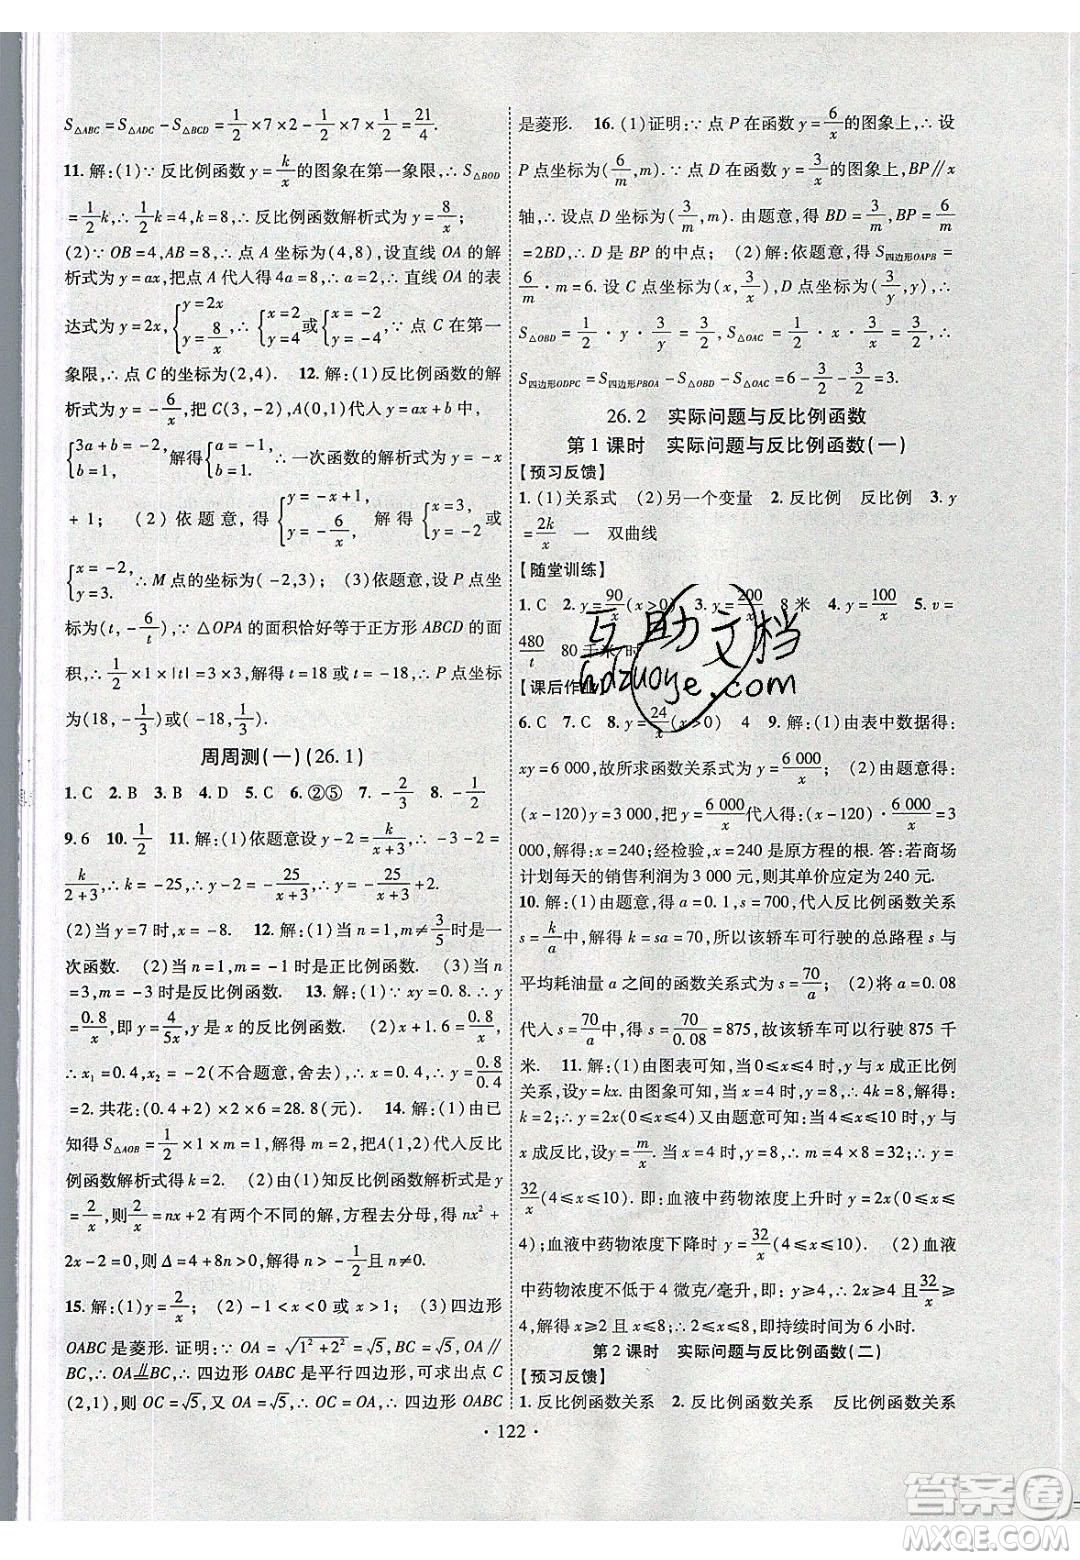 S△ABC=S△ADC−S△BCD=1/2×7×2−1/2×7×1/2=21/4.
11. 解:(1)∵反比例函数y=k/x的图象在第一象限,∴S△BOD
=1/2k,∴1/2k=4,k=8,∴反比例函数解析式为y=8/x;
(2)∵OB=4,AB=8,∴点A坐标为(4,8),设直线OA的解
析式为y=ax,把点A代人得4a=8,∴直线OA的表
达式为y=2x,{y=2x y=8/x∴{x=2 y=4或{x=-2 y=-4,∵点C在第一
象限,∴点C的坐标为(2,4). 12. 解:(1)反比例函数的解
析式为y=-6/x,把C(3,-2),A(0,1)代人y=ax+b中,
{3a+b=-2 b=1,解得{a=-1 b=1,∴一次函数的解析式为y=-x
+1; (2)依题意,得{y=-x+1 y=-6/x,解得{x=3 y=-2或
{x=-2 y=3.∴M点的坐标为(-2,3); (3)依题意,设P点坐
标为(t,-6/t),∵△OPA的面积恰好等于正方形ABCD的面
积,∴1/2×1×|t|=3×3,解得t=18或-18,∴P点的坐标为
(18,-1/3)或(-18,1/3).
周周测(一)(26.1)
1. C 2. B 3. B 4. D 5. C 6. ②⑤ 7. -2/3 8. -1/2
9. 6 10. 1/2 11. 解:(1)依题意设y-2=k/(x+3),∴-3-2=
k/(2+3),∴k=-25,∴y-2=-25/(x+3),∴y=-25/(x+3)+2;
(2)当y=7时,x=-8. 12. 解:(1)当n=1,m≠3/5时是一
次函数. (2)当n=1,m=-1时是正比例函数. (3)当n
=3,m=-3时是反比例函数. 13. 解:(1)∵xy=0.8.∴y=
0.8/x,即y=4/5x,y是x的反比例函数. (2)x(x+1.6)=0.8,
∴x₁=0.4,x₂=-2(不合题意,舍去),∴x=0.4,y=0.8/0.4
=2. 共花:(0.4+2)×2×6=28.8(元). 14. 解:(1)由已
知得S△AOB=1/2×1×m=1,解得m=2,把A(1,2)代人反比
例函数解析式得k=2. (2)由(1)知反比例函数解析式是y
=2/x,则2/x=nx+2有两个不同的解,方程去分母,得nx²+
2x-2=0,则Δ=4+8n>0,解得n>-1/2且n≠0.
15. 解:(1)y=2/x; (2)-1<x<0或x>1; (3)四边形
OABC是菱形. 证明:∵OA=√1²+2²=√5,BC=√5,OA∥
BC,∴OA⫫BC,∴四边形OABC是平行四边形,可求出点C
(2,1),则OC=√5,又OA=√5,∴OC=OA,∴四边形OABC
是菱形. 16. (1)证明:∵点P在函数y=6/x的图象上,∴设
P点坐标为(6/m,m). ∵点D在函数y=3/x的图象上,BP∥x
轴,∴设点D坐标为(3/m,m). 由题意,得BD=3/m,BP=6/m
=2BD,∴D是BP的中点; (2)解:依题意,得S四边形OAPB=
6/m·m=6. 设C点坐标为(x,3/x),D点坐标为(3/y,y),∴
S△OBD=1/2·y·3/y=3/2,S△OAC=1/2·x·3/x=3/2,∴
S四边形ODPC=S四边形PBOA−S△OBD−S△OAC=6−3/2−3/2=3.
26.2 实际问题与反比例函数
第1课时 实际问题与反比例函数(一)
【预习反馈】
1. (1)关系式 (2)另一个变量 2. 反比例 反比例 3. y
=2k/x 一 双曲线
【随堂训练】
1. C 2. y=90/x(x>0) 3. y=200/x 8米 4. y=100/x 5. v=
480/t 80千米/时
【课后作业】
6. C 7. C 8. y=24/x(x>0) 4 9. 解:(1)由表中数据得:
xy=6 000,故所求函数关系式为y=6 000/x; (2)由题意得:
(x-120)y=3 000,把y=6 000/x代人得:(x-120)·6 000/x=3
000,解得:x=240;经检验,x=240是原方程的根. 答:若商场
计划每天的销售利润为3 000元,则其单价应定为240元.
10. 解:(1)由题意,得a=0.1,s=700,代人反比例函数关系
s=k/a中,解得:k=sa=70,所以该轿车可行驶的总路程s与
平均耗油量a之间的函数关系式为s=70/a; (2)将a=0.08
代人s=70/a中,得s=70/0.08=875,故该轿车可以行驶875千
米. 11. 解:(1)由图表可知,当0≤x≤4时,y与x成正比例
关系,设y=kx. 由图象可知,当x=4时,y=8,∴4k=8,解得:
k=2;∴y=2x(0≤x≤4)又由题意可知:当4≤x≤10时,y与
x成反比,设y=m/x. 当x=4时,y=8,∴m=4×8=32;∴y=
32/x(4≤x≤10). 即:血液中药物浓度上升时y=2x(0≤x≤
4);血液中药物浓度下降时y=32/x(4≤x≤10); (2)血液
中药物浓度不低于4微克/毫升,即:y≥4,∴2x≥4且32/x≥
4,解得x≥2且x≤8;∴2≤x≤8,即持续时间为6小时.
第2课时 实际问题与反比例函数(二)
【预习反馈】
1. 反比例函数关系 2. 反比例函数关系 反比例函数关系
·122·
互助文档
hdzuoye.com
答案圈
MXQE.COM